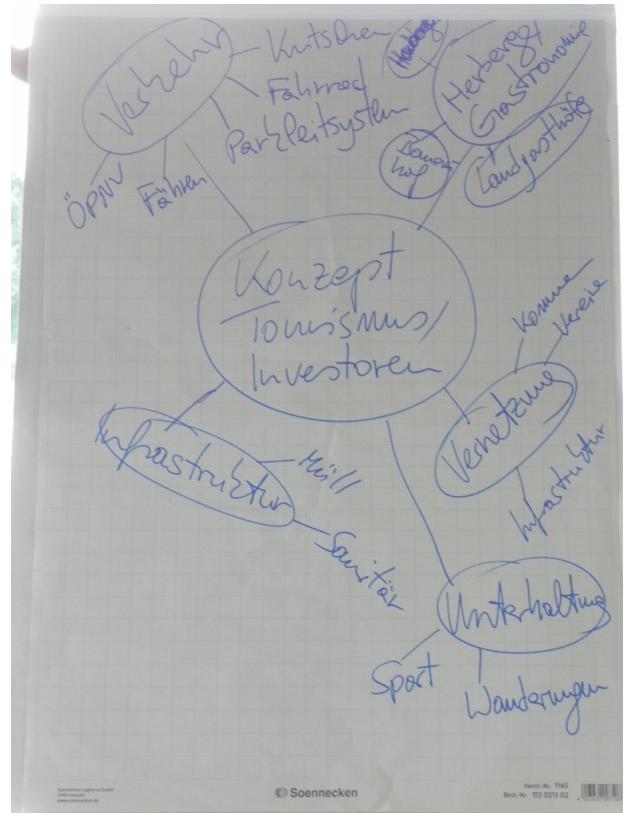 Verkehr
Kutschen
Fahrrad
Parkleitsystem
Fähren
ÖPNV
Herberge/
Gastronomie
Landgasthöfe
Konzept
Tourismus/
Investoren
Vernetzung
Kommune
Vereine
Infrastruktur
Infrastruktur
Müll
Sanitär
Unterhaltung
Sport
Wanderungen
Soennecken
www.soennecken.de
Herst.-Nr. 1145
Best.-Nr. 155 0213 02